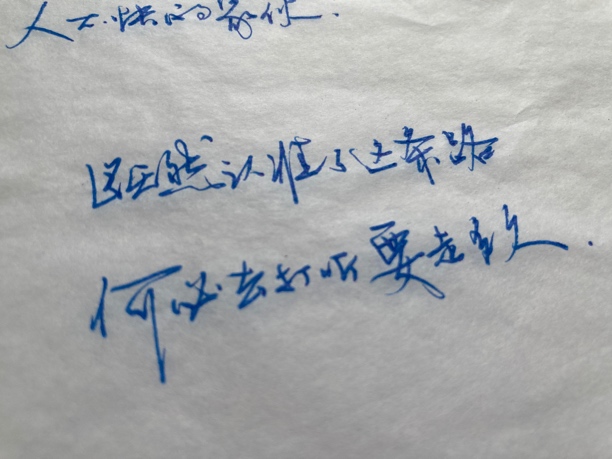 人不快的家伙.
既然认准了这条路
何必去打听要走多久.